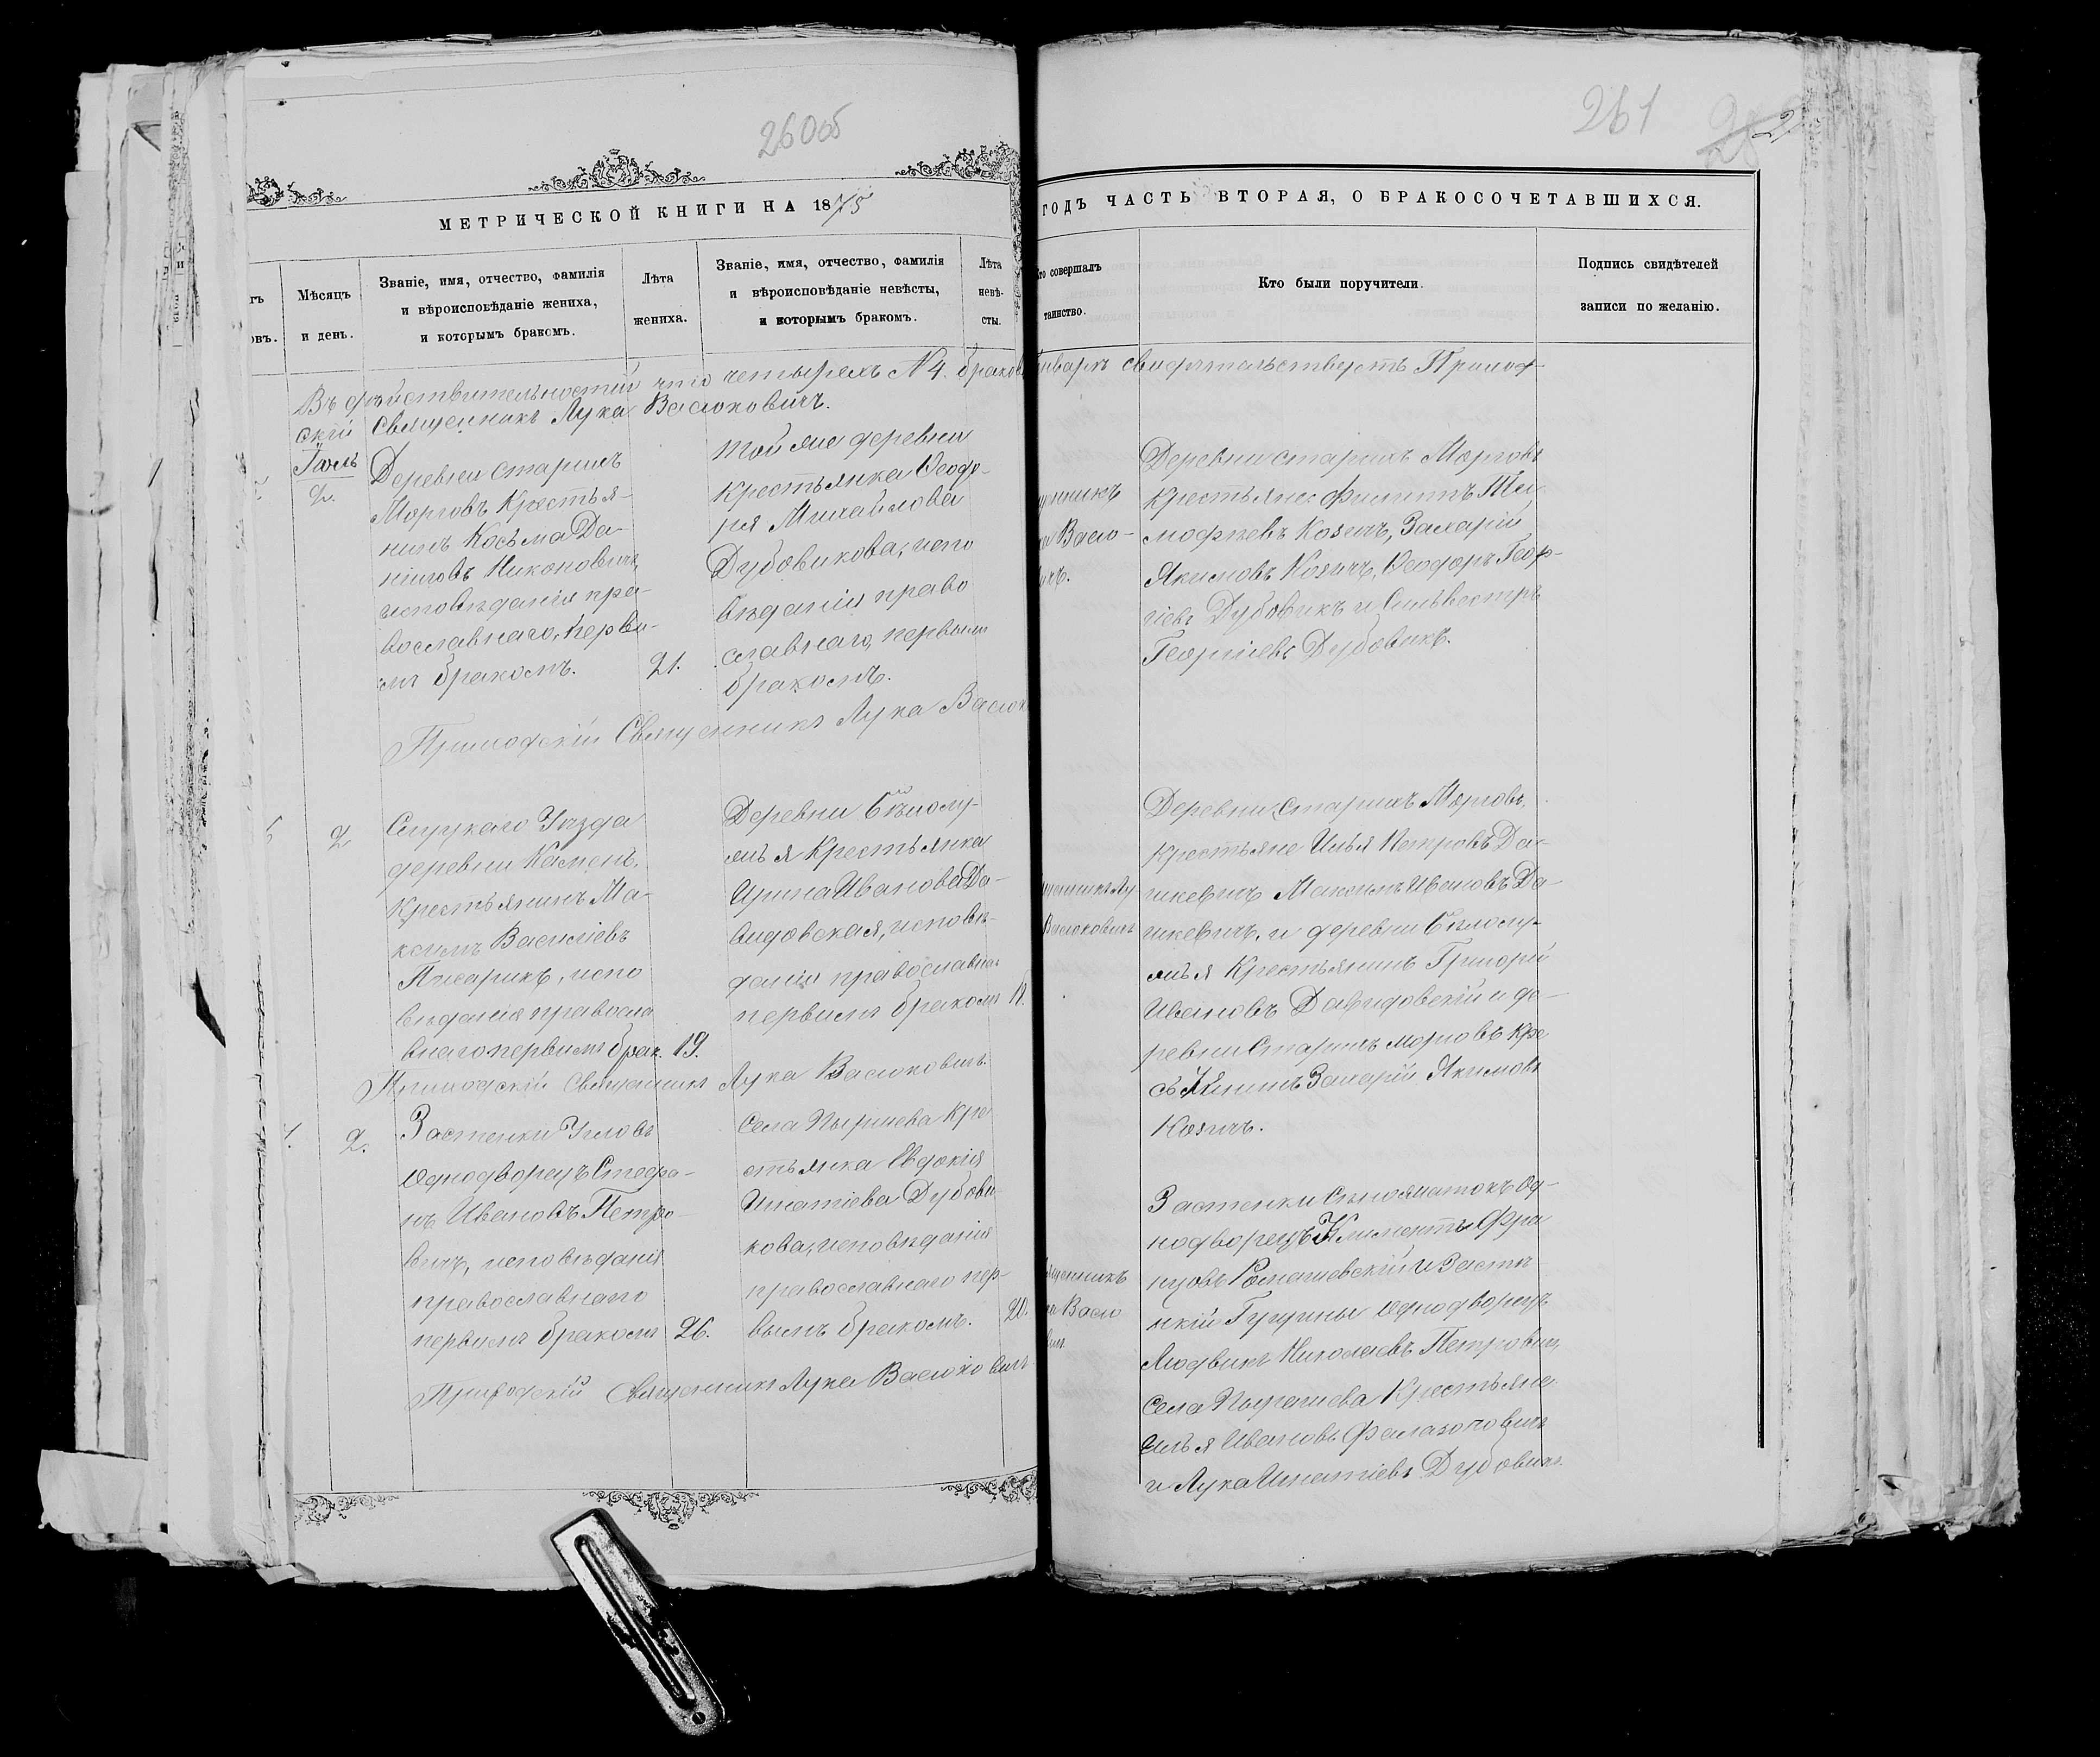 260об
261
МЕТРИЧЕСКОЙ КНИГИ НА 1875
ГОДЪ ЧАСТЬ ВТОРАЯ, О БРАКОСОЧЕТАВШИХСЯ.
Мѣсяцъ
и день.
Званіе, имя, отчество, фамилія
и вѣроисповѣданіе жениха,
и которымъ бракомъ.
Лѣта
жениха.
Званіе, имя, отчество, фамилія
и вѣроисповѣданіе невѣсты,
и которымъ бракомъ.
Лѣта
невѣ-
сты.
то совершалъ
таинство.
Кто были поручители.
Подпись свидѣтелей
записи по желанію.
Въ дѣйствительности что четырехъ №4. браковъ
свидѣтельствуетъ Приход-
скій Священникъ Лука Васюковичъ.
2.
Деревни старихъ
Морговъ Крестья-
нинъ Косьма Да-
ніиловъ Никоновичъ,
исповѣданія пра-
вославнаго, первы-
мъ бракомъ.
21.
той же деревни
Крестьянка Ѳеодо-
ра Михайлова
Дубовикова, испо
вѣданія право
славнаго, первымъ
бракомъ.
Васю-
Деревни старихъ Морговъ
Крестьяне Филиппъ Ти
мофѣевъ Козичъ, Захарій
Якимовъ Козичъ, Ѳеодоръ Геор-
гіевъ Дубовикъ и Сильвестръ
Георгіевъ Дубовикъ.
Приходскій Священникъ Лука Васюк
2
Слуцкаго Уѣзда
деревни Камень,
Крестьянинъ Ма-
ксимъ Василіевъ
Писарикъ, испо
вѣданія правосла
внаго первымъ брак.
19.
Деревни Бѣлолу-
жья Крестьянка
Ирина Иванова Да-
видовская, исповѣ-
данія православна
первымъ бракомъ
Васюковичъ
Деревни Старихъ Морговъ,
Крестьяне Илья Петровъ Да-
шкевичъ Максимъ Ивановъ Да-
шкевичъ, и деревни Бѣлолу-
жья Крестьянинъ Григорій
Ивановъ Давидовскій и де-
ревни Старихъ морговъ Кре
стьянинъ Захарій Якимовъ
Козичъ.
Приходскій Священникъ Лука Васюковичъ.
2.
Застенки Угловъ
Однодворецъ Стефа-
нъ Ивановъ Петро-
вичъ, исповѣданія
православнаго
первымъ бракомъ
26.
Села Пырашева Кре
стьянка Евдокія
Игнатіева Дубови
кова, исповѣданія
православнаго пер-
вымъ бракомъ.
20.
Васю
Застенки Сѣножатокъ Од-
нодворецъ Климентъ Фра
нцовъ Ромашевскій и Засте
нкій Гущины однодворецъ
Людвикъ Николаевъ Петровичъ,
села Пырашева Крестьяне
Илья Ивановъ
и Лука Игнатіевъ Дубовикъ.
Приходскій Священникъ Лука Васюковичъ